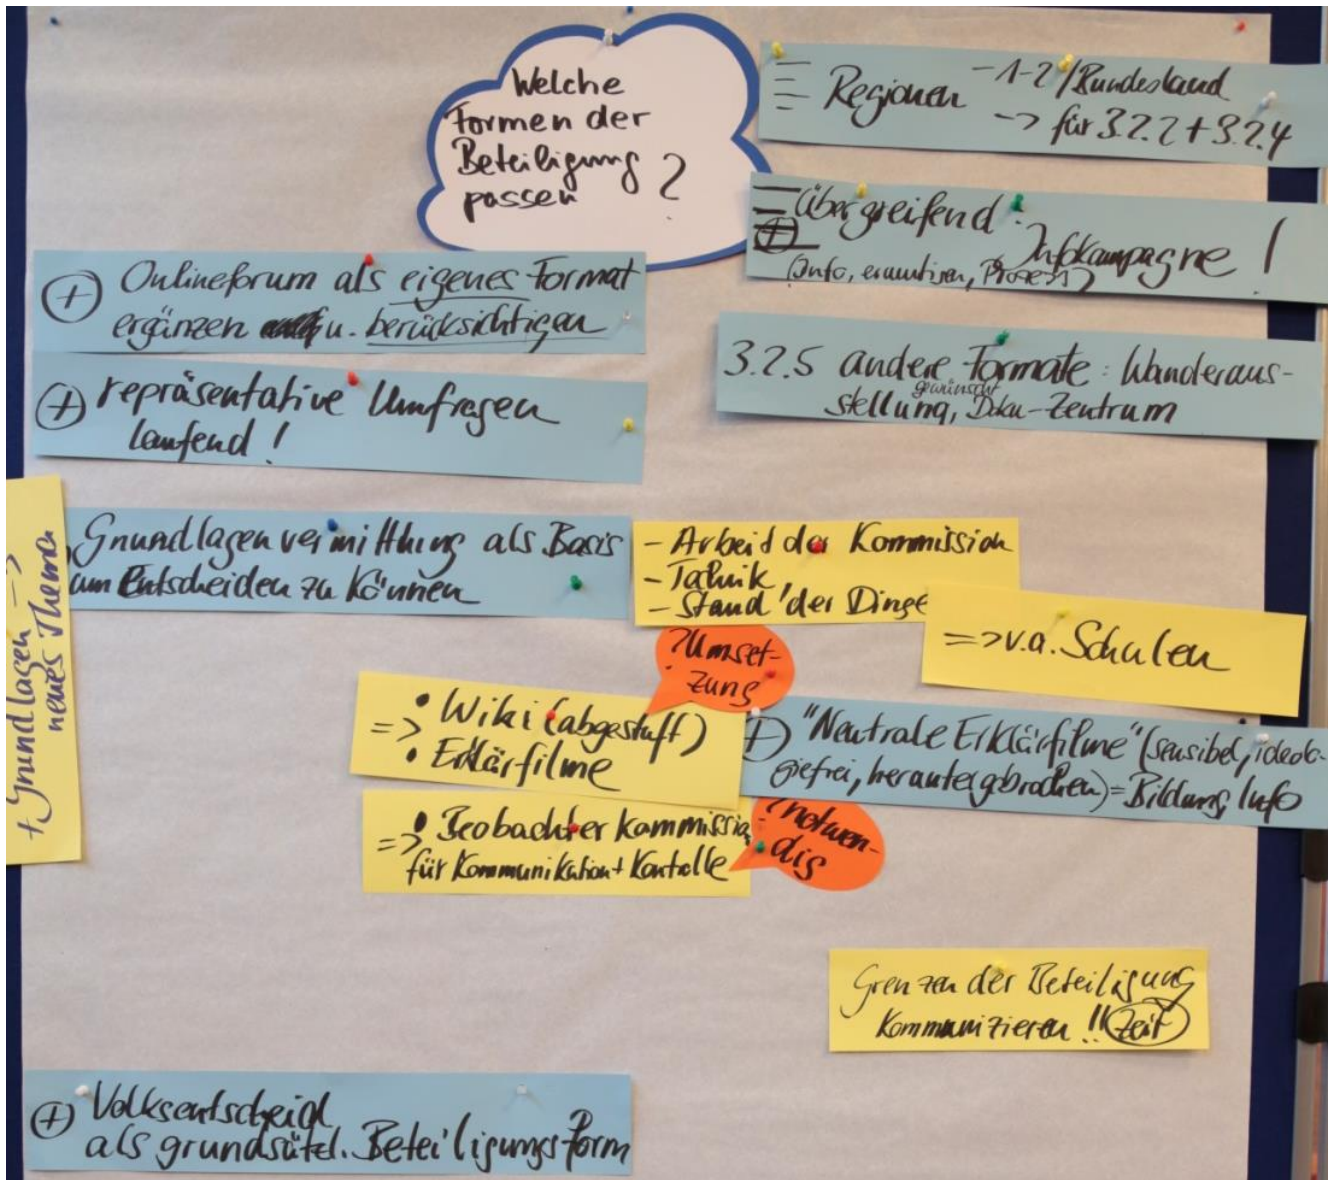 Welche
Formen der
Beteiligung
passen ?
Regionen - 1-2/Bundesland
-> für 3.2.2 + 3.2.4
Übergreifend:
Infokampagne !
(Info, ermutigen, Prozess)
3.2.5 andere Formate: Wanderaus-
gewünscht
stellung, Doku-Zentrum
+ Onlineforum als eigenes Format
ergänzen u. berücksichtigen
+ repräsentative Umfragen
laufend !
+ Grundlagen ->
neues Thema
Grundlagenvermittlung als Basis
um Entscheiden zu können
- Arbeit der Kommission
- Technik
- Stand der Dinge
=> v.a. Schulen
? Umset-
zung
=> • Wiki (abgestuft)
• Erklärfilme
+ "Neutrale Erklärfilme" (sensibel, ideolo-
giefrei, heruntergebrochen) = Bildung, Info
=> • Beobachter Kommission
für Kommunikation + Kontrolle
? notwen-
dig
Grenzen der Beteiligung
Kommunizieren !! Zeit
+ Volksentscheid
als grundsätzl. Beteiligungsform